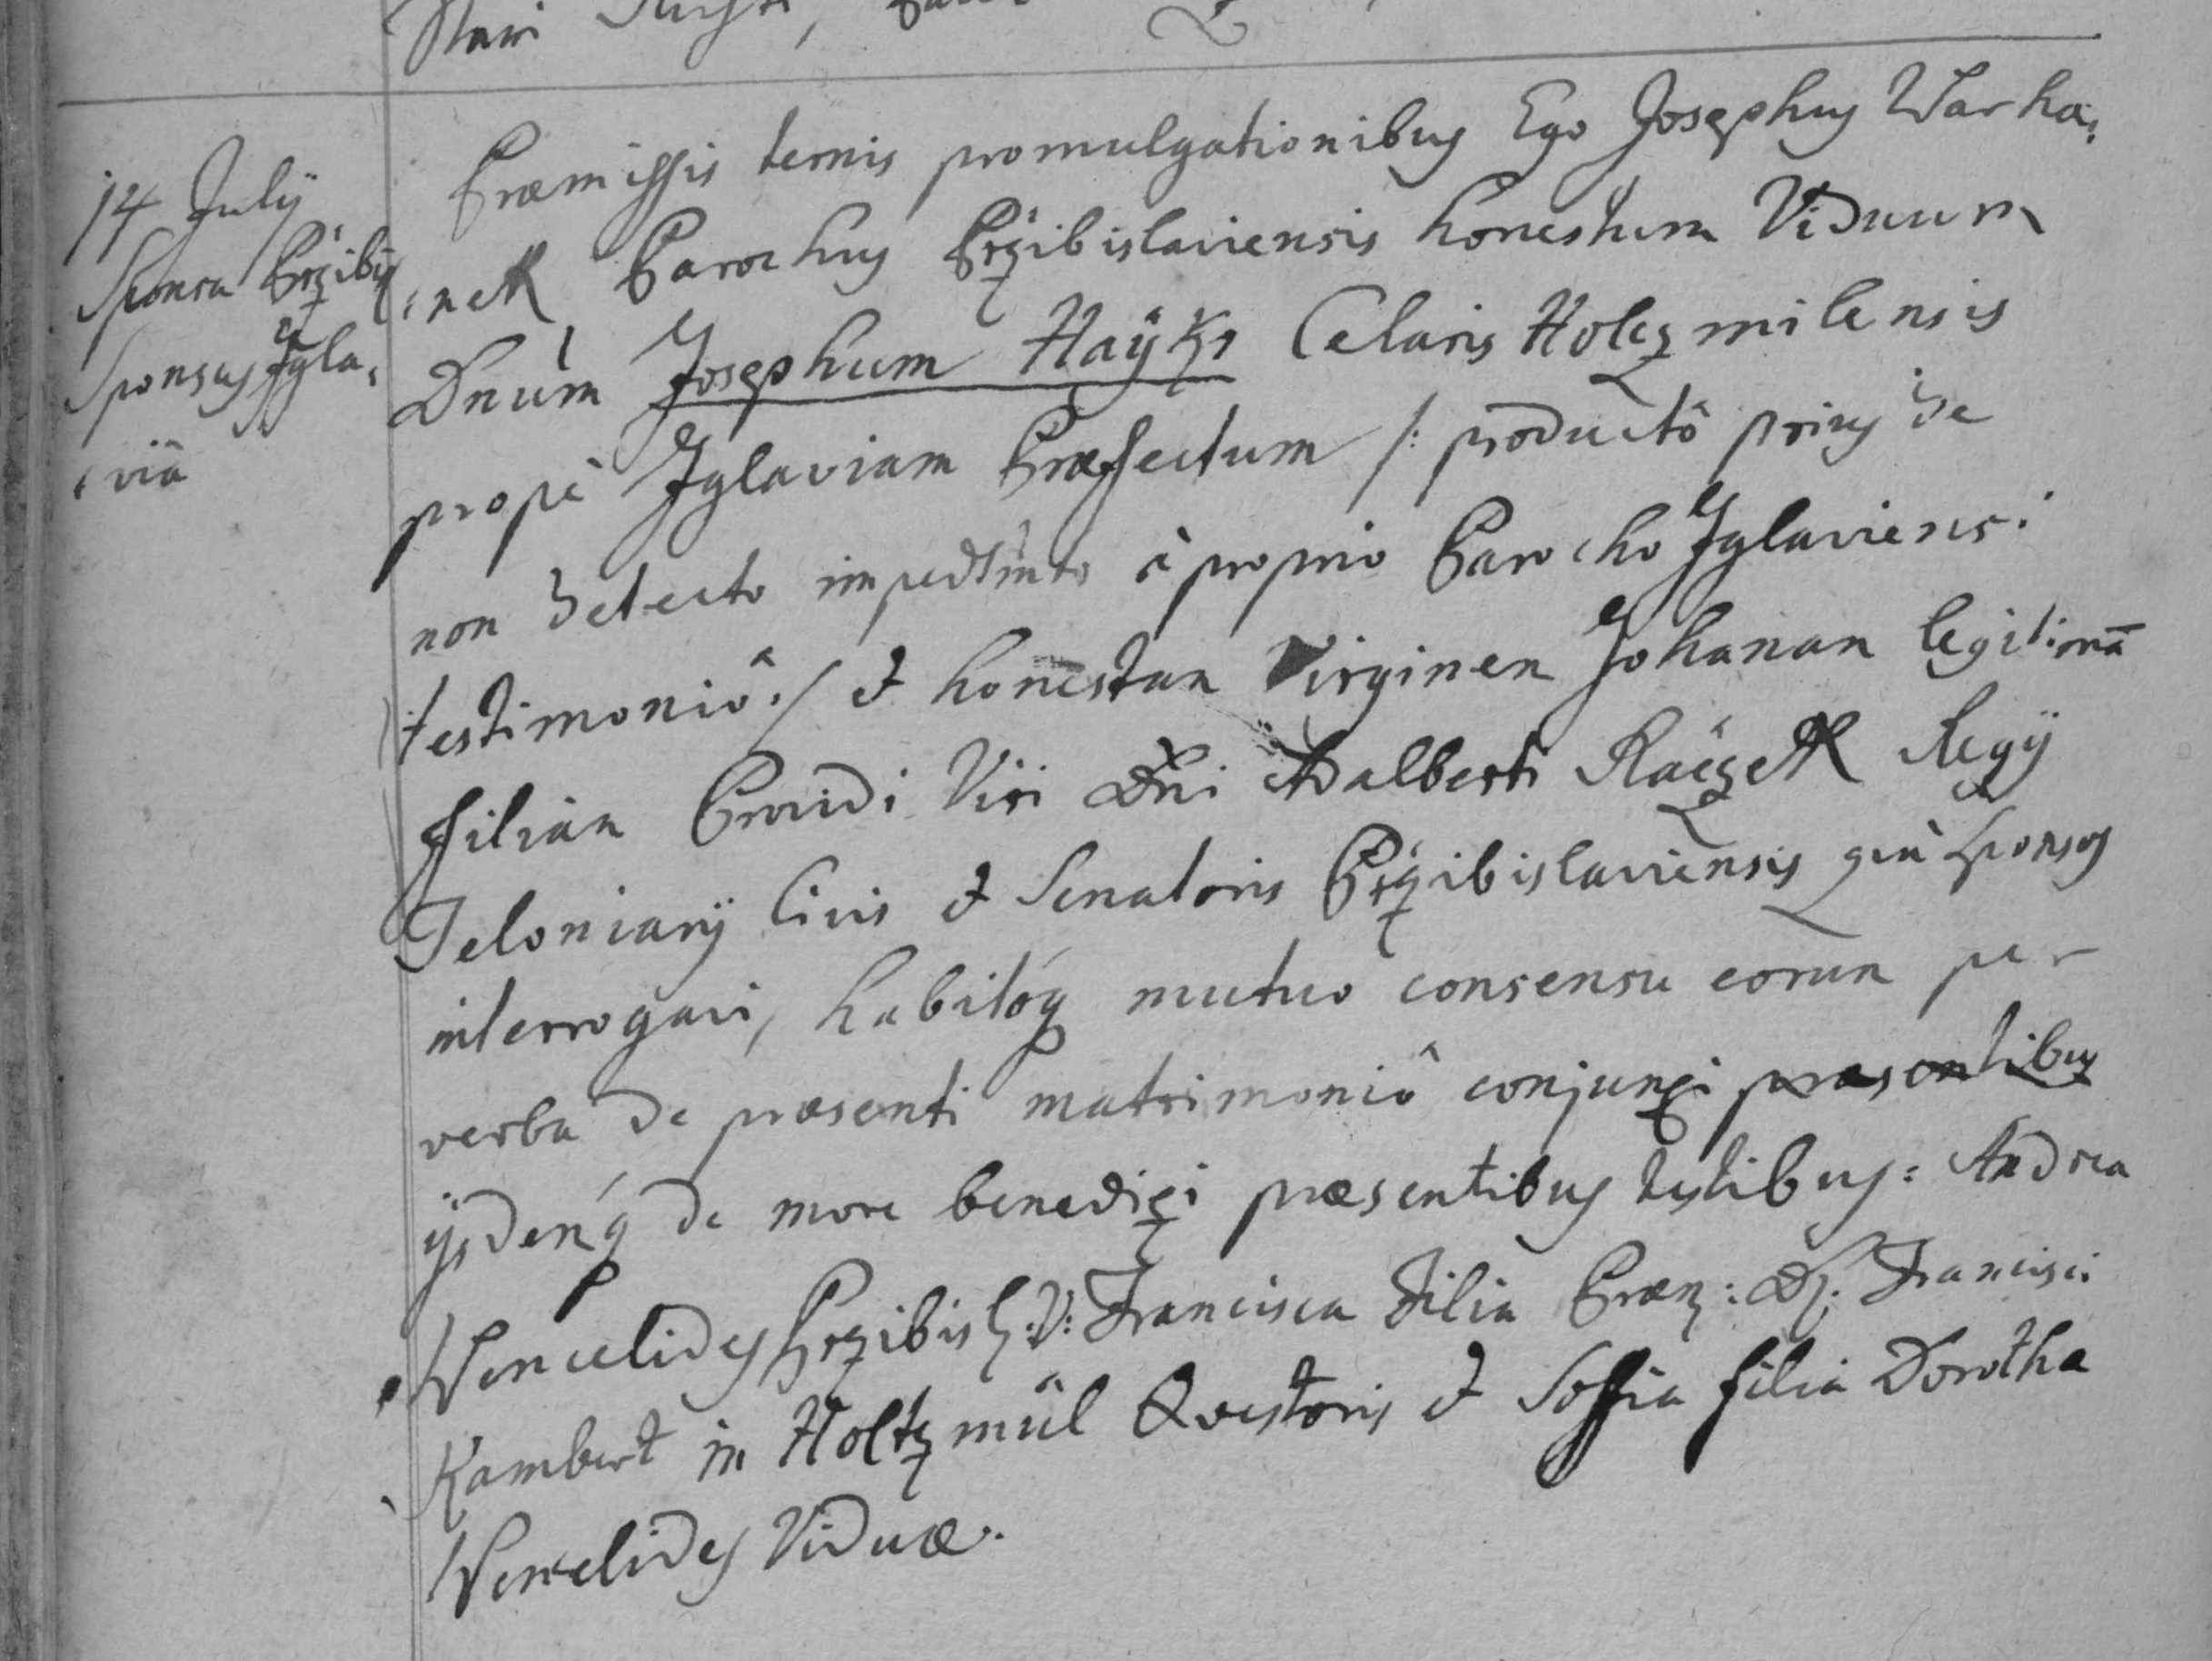 14 July
Sponsa Przibis:
Sponsus Igla:
:viâ
Præmissis ternis promulgationibus Ego Josephus Warha:
:nek Parochus Przibislaviensis honestum Viduum
Dnum Josephum Haÿk Celaris Holczmilensis
propè Iglaviam Præfectum /: productô prius de
non detecto impedimto à proprio Parocho Iglaviensi
testimoniô :/ et honestam Virginem Johanam legitimã
filiam Providi Viri Dni Adalberti Raczek Regÿ
Teloniarÿ Civis et Senatoris Przibislaviensis quâ Sponsos
interrogavi, habitóq mutuo consensu eorum per
verba de præsenti matrimoniô conjunxi præsentibus
ÿsdemq́ de more benedixi præsentibus testibus: Andrea
Wencelides Przibisl: V: Francisca Filia Præn: D: Francisci
Kambert in Holtzmül Qvestoris et Soffia filia Dorothea
Wencelides Viduæ.